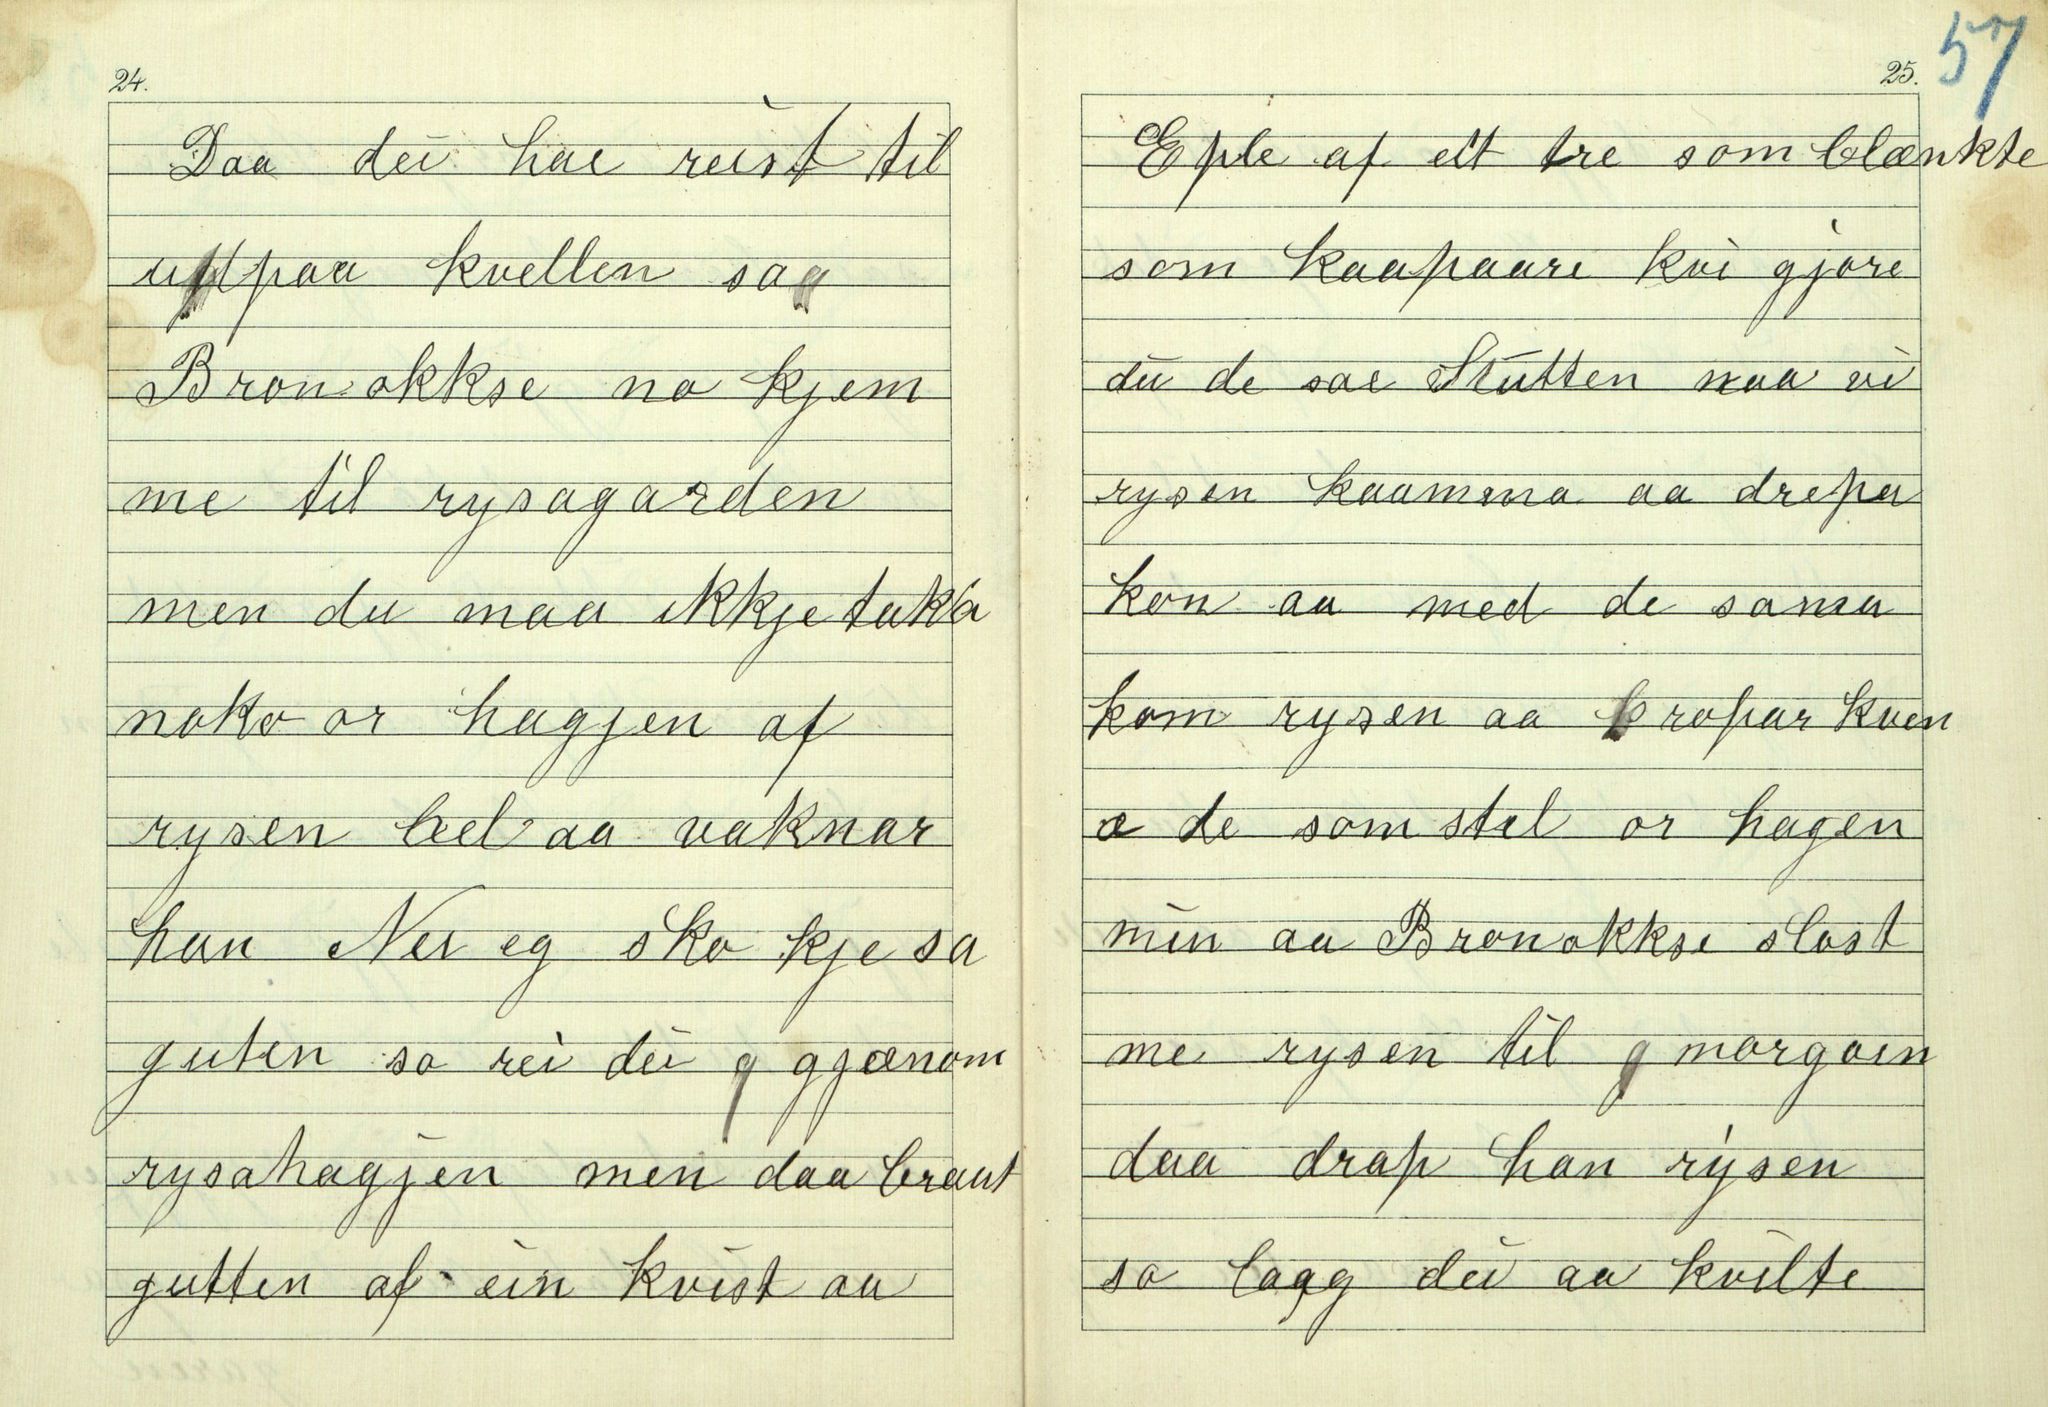 24.
Daa dei hae reist til
uppaa kvellen saa
Bronokkse no kjem
me til rysagarden
men du maa ikkje taka
noko or hagjen af
rysen bel aa vaknar
han Nei eg sko kje sa
guten so rei dei g gjænom
rysahagjen men daa braut
gutten af ein kvist aa
25. 57
Eple af eit tre som blænkte
som kaapaare kvi gjore
du de sae Stutten naa vi
rysen kaamma aa drepa
kon aa med de sama
kom rysen aa kropar kven
æ de som stel or hagen
min aa Bronokkse slost
me rysen til morgoin
daa drap han rysen
so laag dei aa kvilte